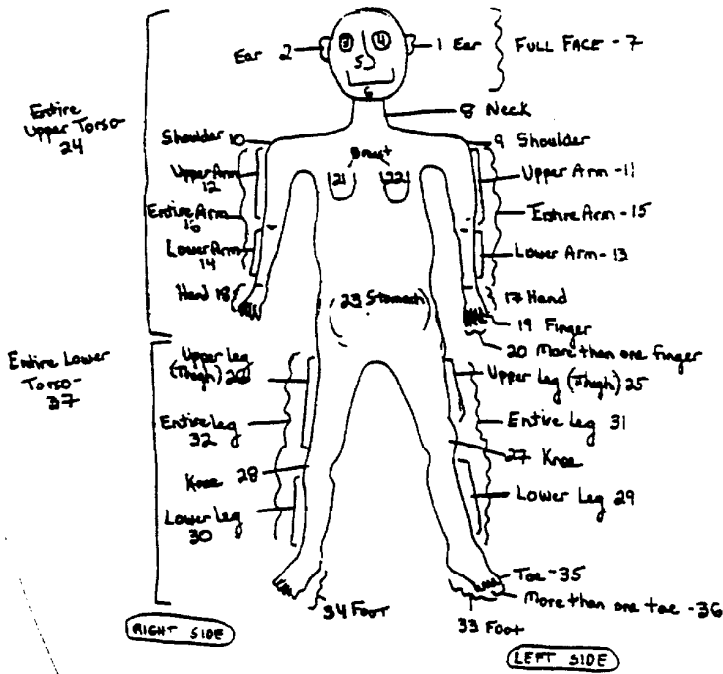 3 4
Ear 2
1 Ear
FULL FACE - 7
5
6
8 Neck
Entire
Upper Torso -
24
Shoulder 10
9 Shoulder
Breast
21 22
Upper Arm
12
Upper Arm - 11
Entire Arm
16
Entire Arm - 15
Lower Arm
14
Lower Arm - 13
Hand 18
17 Hand
23 Stomach
19 Finger
20 More than one finger
Entire Lower
Torso -
37
Upper Leg
(Thigh) 26
Upper Leg (Thigh) 25
Entire Leg
32
Entire Leg 31
27 Knee
Knee 28
Lower Leg
30
Lower Leg 29
Toe - 35
More than one toe - 36
34 Foot
33 Foot
RIGHT SIDE
LEFT SIDE